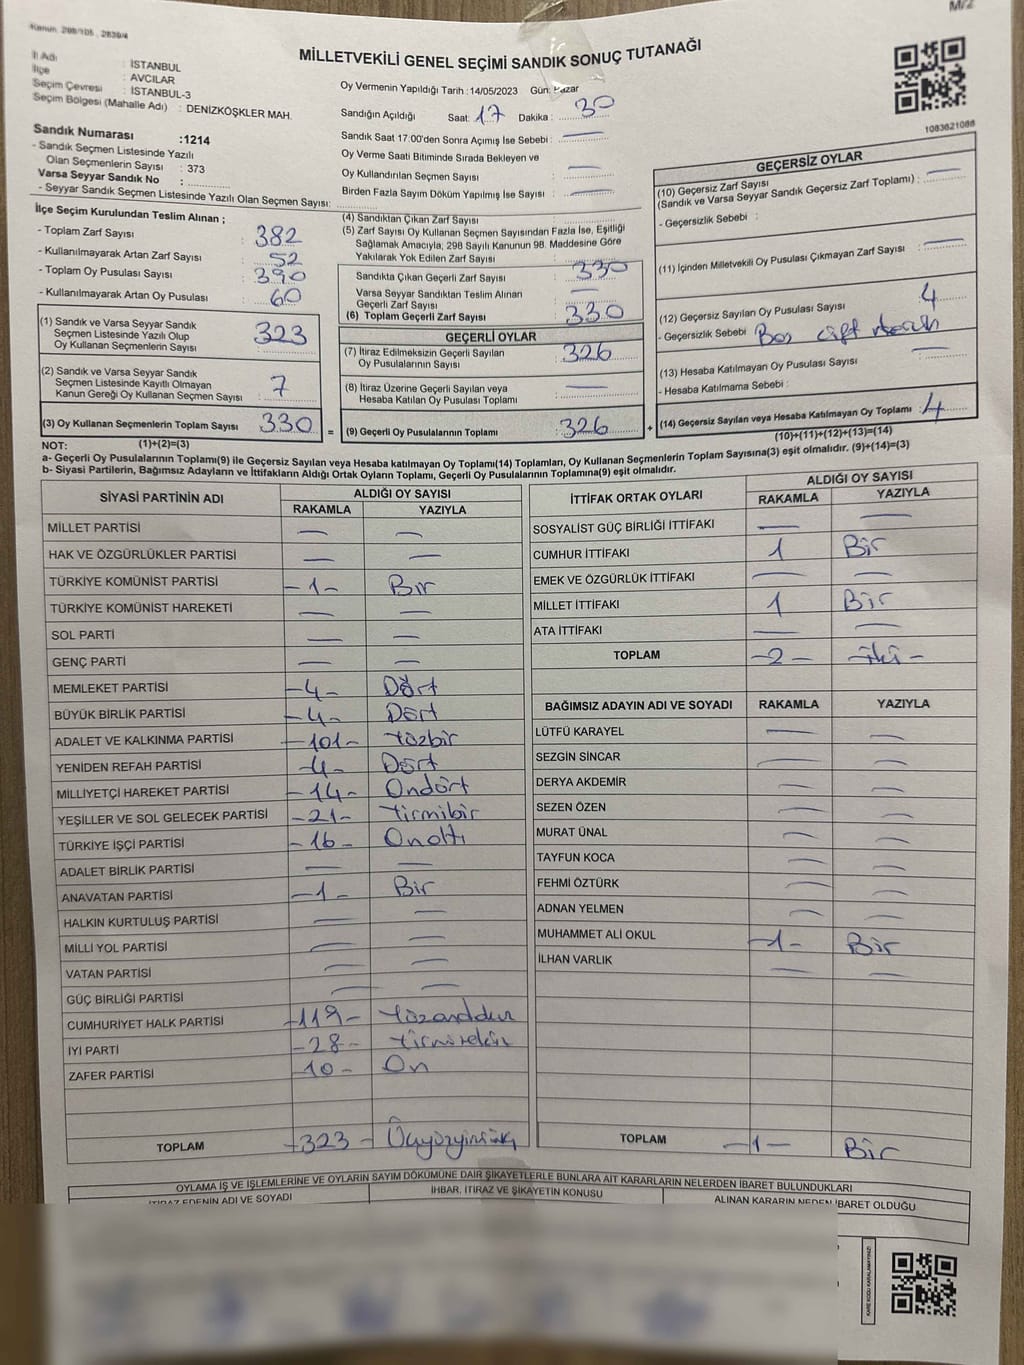 Kanun: 298/105, 2839/4
M/2
MİLLETVEKİLİ GENEL SEÇİMİ SANDIK SONUÇ TUTANAĞI
İl Adı : İSTANBUL
İlçe : AVCILAR
Seçim Çevresi : İSTANBUL-3
Seçim Bölgesi (Mahalle Adı) : DENİZKÖŞKLER MAH.
Sandık Numarası :1214
- Sandık Seçmen Listesinde Yazılı
Olan Seçmenlerin Sayısı : 373
Varsa Seyyar Sandık No :
- Seyyar Sandık Seçmen Listesinde Yazılı Olan Seçmen Sayısı:
Oy Vermenin Yapıldığı Tarih :14/05/2023 Gün: Pazar
Sandığın Açıldığı Saat: 17 Dakika : 30
Sandık Saat 17:00'den Sonra Açımış İse Sebebi : —
Oy Verme Saati Bitiminde Sırada Bekleyen ve
Oy Kullandırılan Seçmen Sayısı : —
Birden Fazla Sayım Döküm Yapılmış İse Sayısı : —
1083621088
İlçe Seçim Kurulundan Teslim Alınan ;
- Toplam Zarf Sayısı : 382
- Kullanılmayarak Artan Zarf Sayısı : 52
- Toplam Oy Pusulası Sayısı : 390
- Kullanılmayarak Artan Oy Pusulası : 60
(1) Sandık ve Varsa Seyyar Sandık
Seçmen Listesinde Yazılı Olup
Oy Kullanan Seçmenlerin Sayısı : 323
(2) Sandık ve Varsa Seyyar Sandık
Seçmen Listesinde Kayıtlı Olmayan
Kanun Gereği Oy Kullanan Seçmen Sayısı : 7
(3) Oy Kullanan Seçmenlerin Toplam Sayısı : 330
(4) Sandıktan Çıkan Zarf Sayısı
(5) Zarf Sayısı Oy Kullanan Seçmen Sayısından Fazla İse, Eşitliği
Sağlamak Amacıyla, 298 Sayılı Kanunun 98. Maddesine Göre
Yakılarak Yok Edilen Zarf Sayısı :
Sandıkta Çıkan Geçerli Zarf Sayısı : 330
Varsa Seyyar Sandıktan Teslim Alınan
Geçerli Zarf Sayısı : —
(6) Toplam Geçerli Zarf Sayısı : 330
GEÇERLİ OYLAR
(7) İtiraz Edilmeksizin Geçerli Sayılan
Oy Pusulalarının Sayısı : 326
(8) İtiraz Üzerine Geçerli Sayılan veya
Hesaba Katılan Oy Pusulası Toplamı : —
= (9) Geçerli Oy Pusulalarının Toplamı : 326
GEÇERSİZ OYLAR
(10) Geçersiz Zarf Sayısı
(Sandık ve Varsa Seyyar Sandık Geçersiz Zarf Toplamı) : —
- Geçersizlik Sebebi :
(11) İçinden Milletvekili Oy Pusulası Çıkmayan Zarf Sayısı : —
(12) Geçersiz Sayılan Oy Pusulası Sayısı : 4
- Geçersizlik Sebebi : Boş çift
(13) Hesaba Katılmayan Oy Pusulası Sayısı : —
- Hesaba Katılmama Sebebi :
+ (14) Geçersiz Sayılan veya Hesaba Katılmayan Oy Toplamı : 4
NOT: (1)+(2)=(3)
(10)+(11)+(12)+(13)=(14)
a- Geçerli Oy Pusulalarının Toplamı(9) ile Geçersiz Sayılan veya Hesaba katılmayan Oy Toplamı(14) Toplamları, Oy Kullanan Seçmenlerin Toplam Sayısına(3) eşit olmalıdır. (9)+(14)=(3)
b- Siyasi Partilerin, Bağımsız Adayların ve İttifakların Aldığı Ortak Oyların Toplamı, Geçerli Oy Pusulalarının Toplamına(9) eşit olmalıdır.
SİYASİ PARTİNİN ADI ALDIĞI OY SAYISI
RAKAMLA YAZIYLA
MİLLET PARTİSİ — —
HAK VE ÖZGÜRLÜKLER PARTİSİ — —
TÜRKİYE KOMÜNİST PARTİSİ -1- Bir
TÜRKİYE KOMÜNİST HAREKETİ — —
SOL PARTİ — —
GENÇ PARTİ — —
MEMLEKET PARTİSİ -4- Dört
BÜYÜK BİRLİK PARTİSİ -4- Dört
ADALET VE KALKINMA PARTİSİ -101- Yüzbir
YENİDEN REFAH PARTİSİ -4- Dört
MİLLİYETÇİ HAREKET PARTİSİ -14- Ondört
YEŞİLLER VE SOL GELECEK PARTİSİ -21- Yirmibir
TÜRKİYE İŞÇİ PARTİSİ -16- Onaltı
ADALET BİRLİK PARTİSİ — —
ANAVATAN PARTİSİ -1- Bir
HALKIN KURTULUŞ PARTİSİ — —
MİLLİ YOL PARTİSİ — —
VATAN PARTİSİ — —
GÜÇ BİRLİĞİ PARTİSİ — —
CUMHURİYET HALK PARTİSİ -119-
İYİ PARTİ -28- Yirmisekiz
ZAFER PARTİSİ -10- On
TOPLAM -323- Üçyüzyirmiüç
İTTİFAK ORTAK OYLARI ALDIĞI OY SAYISI
RAKAMLA YAZIYLA
SOSYALİST GÜÇ BİRLİĞİ İTTİFAKI — —
CUMHUR İTTİFAKI 1 Bir
EMEK VE ÖZGÜRLÜK İTTİFAKI — —
MİLLET İTTİFAKI 1 Bir
ATA İTTİFAKI — —
TOPLAM -2- -iki-
BAĞIMSIZ ADAYIN ADI VE SOYADI RAKAMLA YAZIYLA
LÜTFÜ KARAYEL — —
SEZGİN SİNCAR — —
DERYA AKDEMİR — —
SEZEN ÖZEN — —
MURAT ÜNAL — —
TAYFUN KOCA — —
FEHMİ ÖZTÜRK — —
ADNAN YELMEN — —
MUHAMMET ALİ OKUL -1- Bir
İLHAN VARLIK — —
TOPLAM -1- Bir
OYLAMA İŞ VE İŞLEMLERİNE VE OYLARIN SAYIM DÖKÜMÜNE DAİR ŞİKAYETLERLE BUNLARA AİT KARARLARIN NELERDEN İBARET BULUNDUKLARI
İTİRAZ EDENİN ADI VE SOYADI İHBAR, İTİRAZ VE ŞİKAYETİN KONUSU ALINAN KARARIN NEDEN İBARET OLDUĞU
KARE KODU KARALAMAYINIZ!